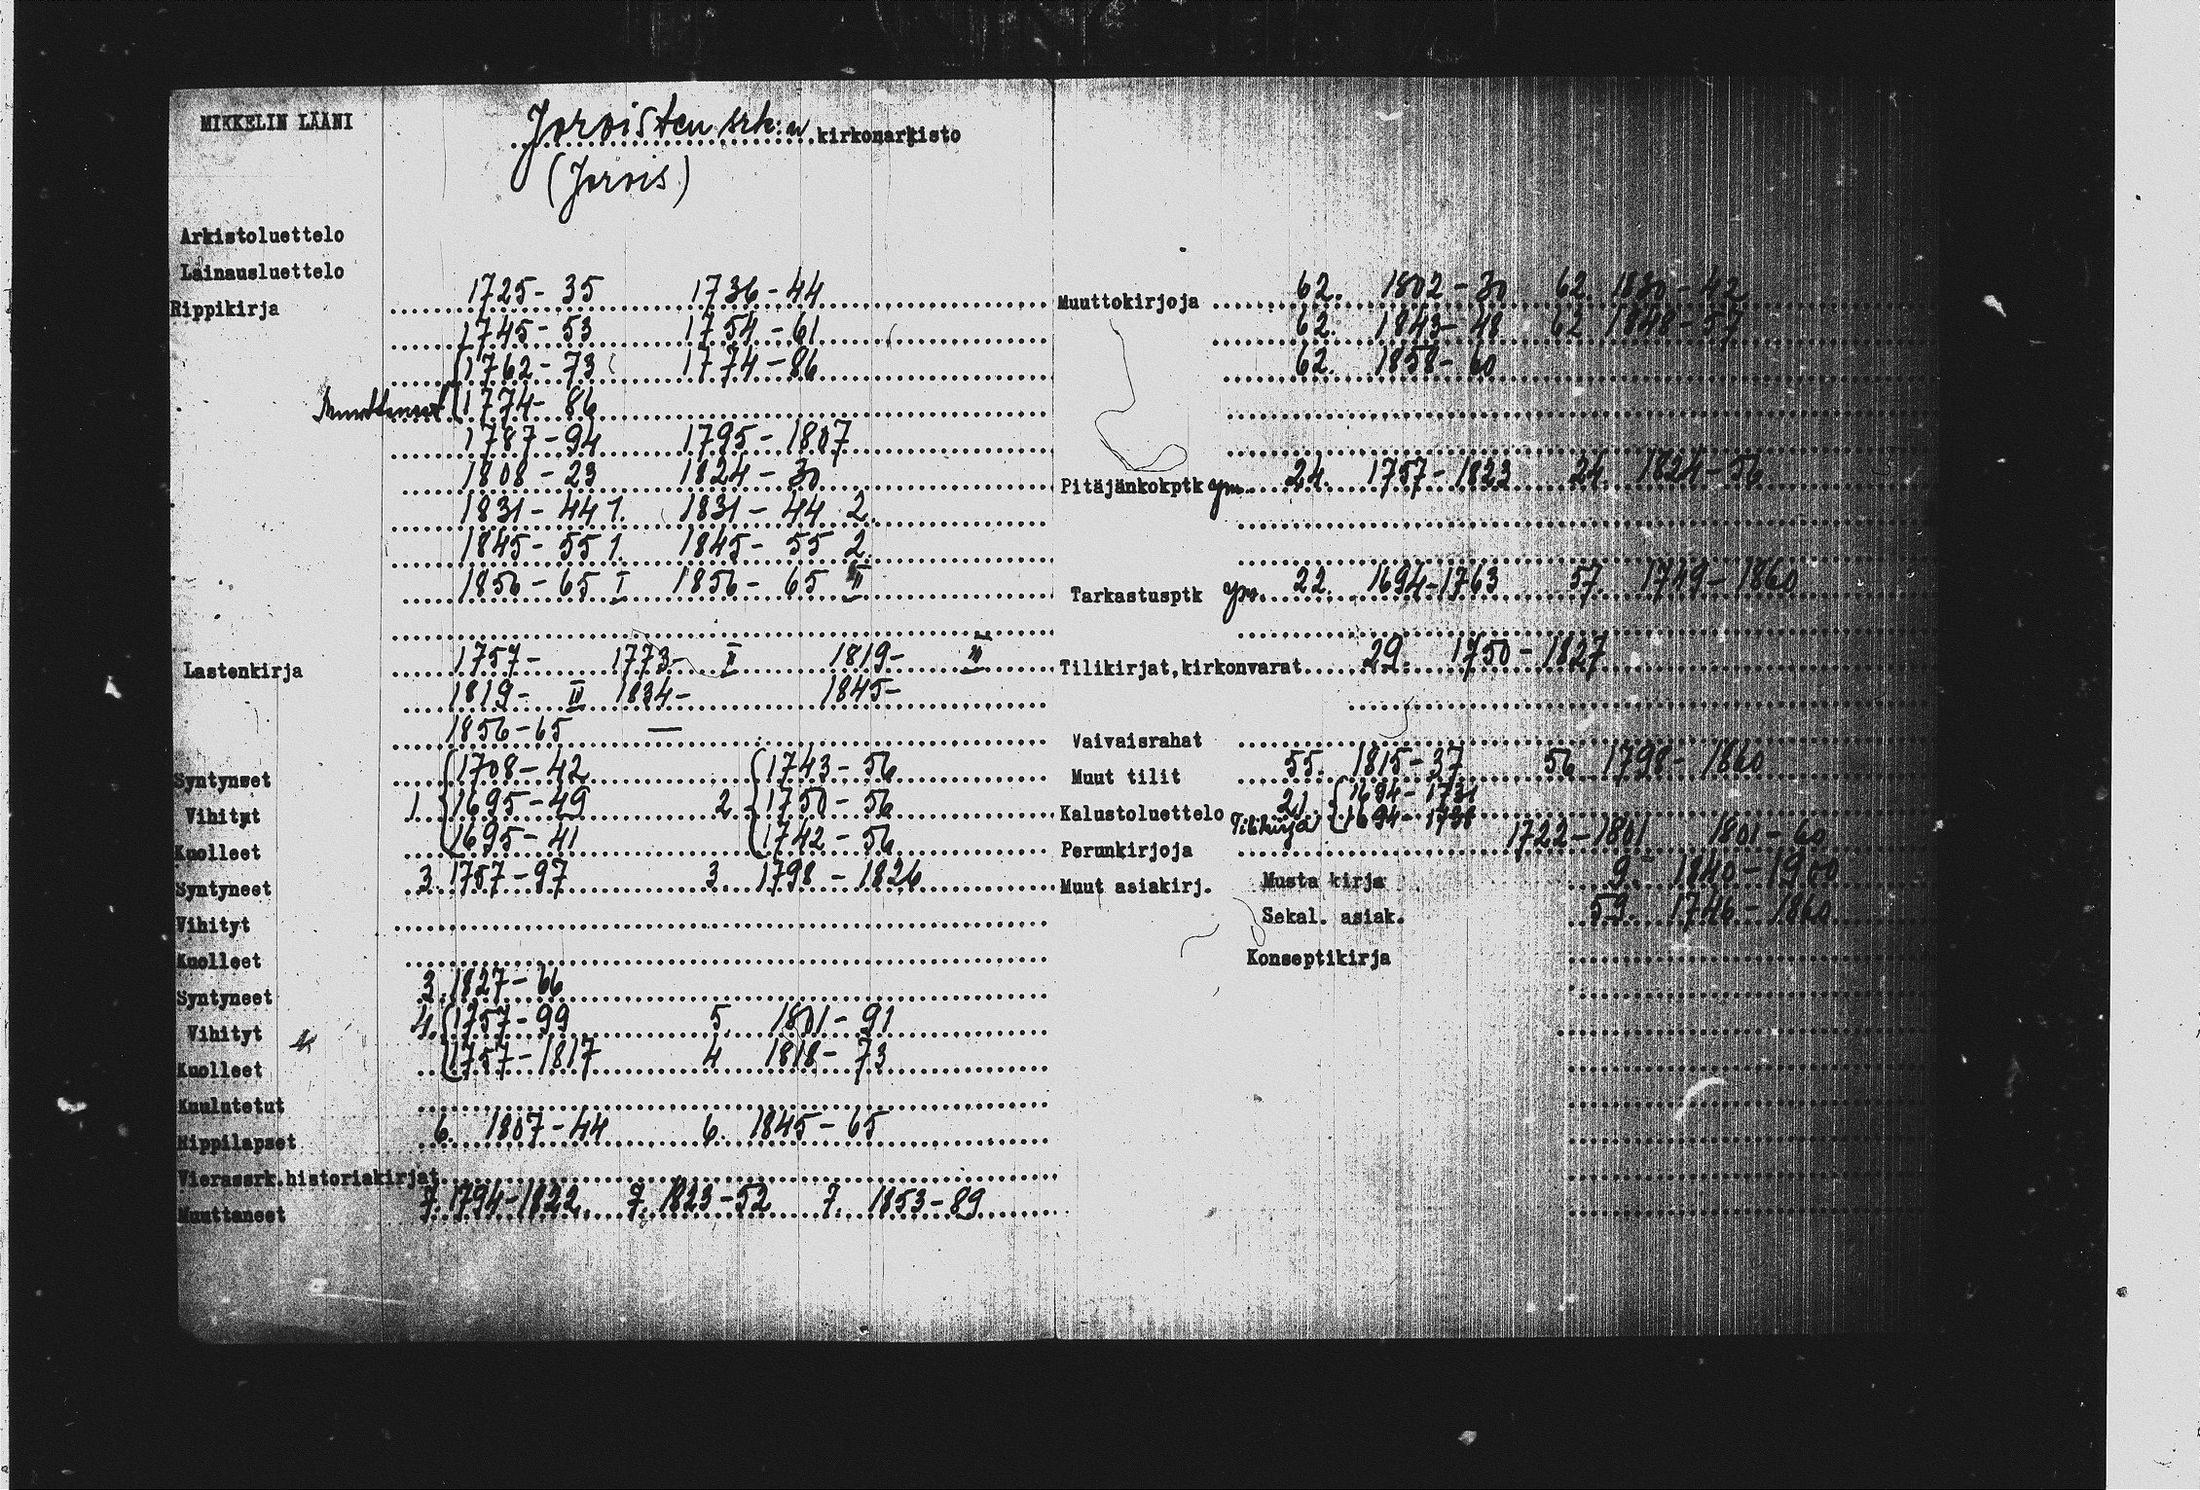 MIKKELIN LÄÄNI
Joroisten srk:n kirkonarkisto
(Jorois)
Arkistoluettelo
Lainausluettelo
Rippikirja 1725-35 1736-44
1745-53 1754-61
1762-73 1774-86
Muuttaneet 1774-86
1787-94 1795-1807
1808-23 1824-30
1831-44 1. 1831-44 2.
1845-55 1. 1845-55 2.
1856-65 I 1856-65 II
Lastenkirja 1757- 1773- I 1819- II
1819- II 1834- 1845-
1856-65 —
Syntyneet 1708-42 1743-56
Vihityt 1 1695-49 2 1750-56
Kuolleet 1695-41 1742-56
Syntyneet 3. 1757-97 3. 1798-1826
Vihityt
Kuolleet
Syntyneet 3. 1827-66
Vihityt 4. 1757-99 5. 1801-91
Kuolleet 1757-1817 4 1818-73
Kuulutetut
Rippilapset 6. 1807-44 6. 1845-65
Vierassrk.historiakirjat
Muuttaneet 7. 1794-1822. 7. 1823-52 7. 1853-89
Muuttokirjoja 62. 1802-30 62. 1830-42
62. 1843-48 62 1848-57
62. 1858-60
Pitäjänkokptk ym. 24. 1757-1823 24. 1824-56
Tarkastusptk ym. 22. 1694-1763 57. 1749-1860
Tilikirjat,kirkonvarat 29. 1750-1827
Vaivaisrahat
Muut tilit 55. 1815-37 56 1798-1860
Kalustoluettelo 21. 1694-1731
Tilikirja 1694-1738
Perunkirjoja 1722-1801 1801-60
Muut asiakirj. Musta kirja 9. 1840-1900
Sekal. asiak. 59. 1746-1860
Konseptikirja